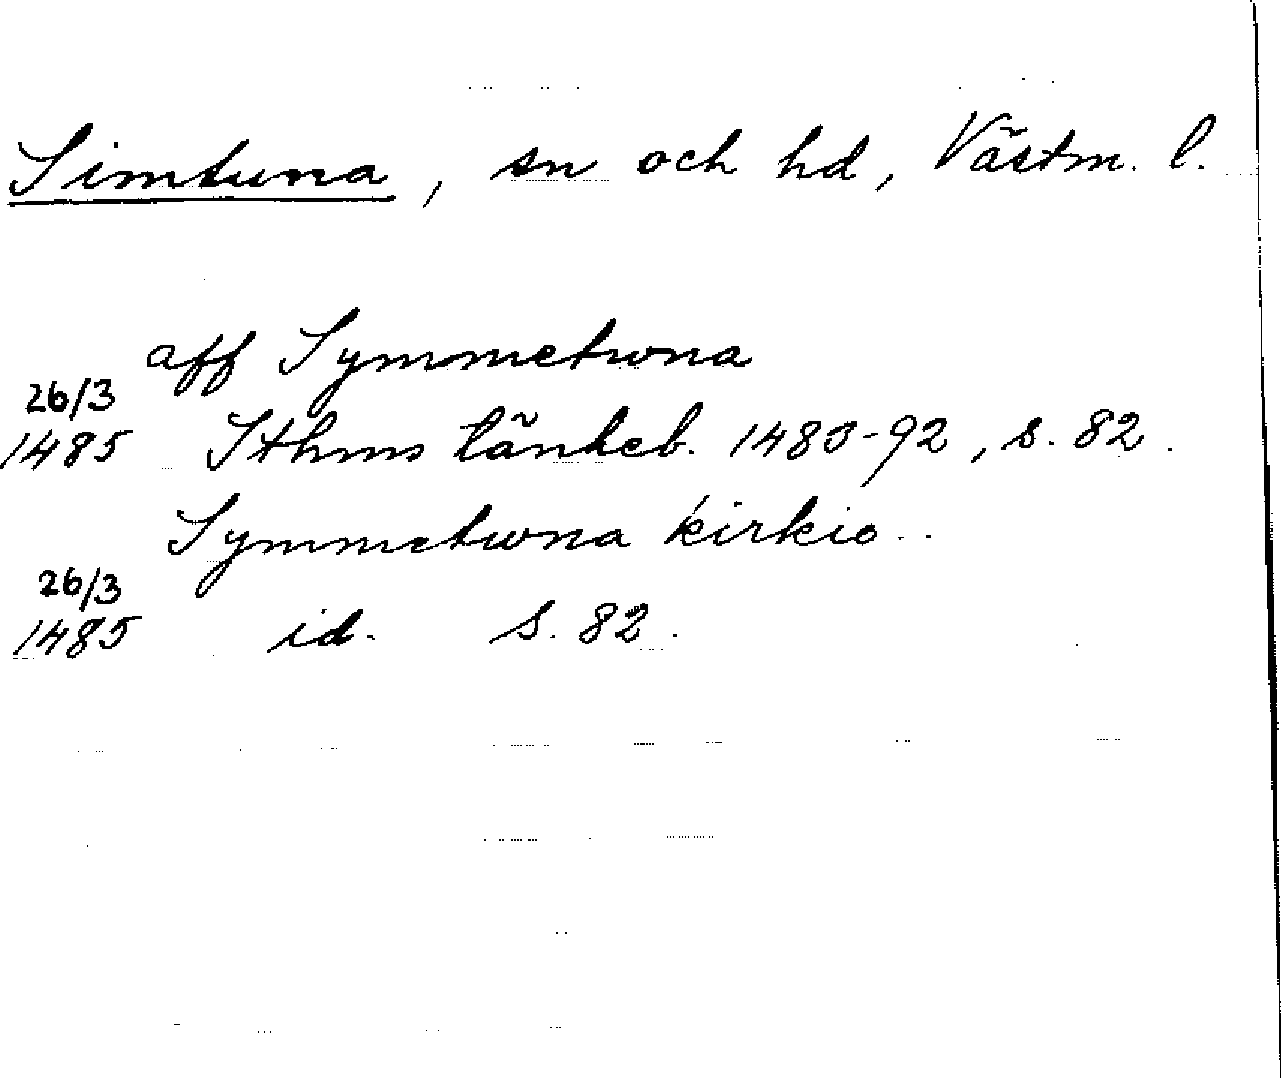 Simtuna, sn och hd, Västm. l.
aff Symmetwna
26/3
1485 Sthms tänkeb. 1483-92, s. 82.
Symmetwna kirkio..
26/3
1485 id. S. 82.